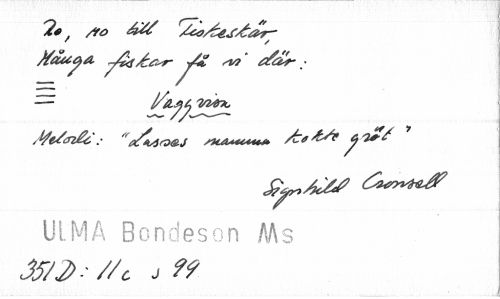 Ro, ro till Fiskeskär,
Många fiskar få vi där:
Vaggvisa
Melodi: "Lasses mamma kokte gröt"
Signhild Cronvall
ULMA Bondeson Ms
351D: 11c s 99